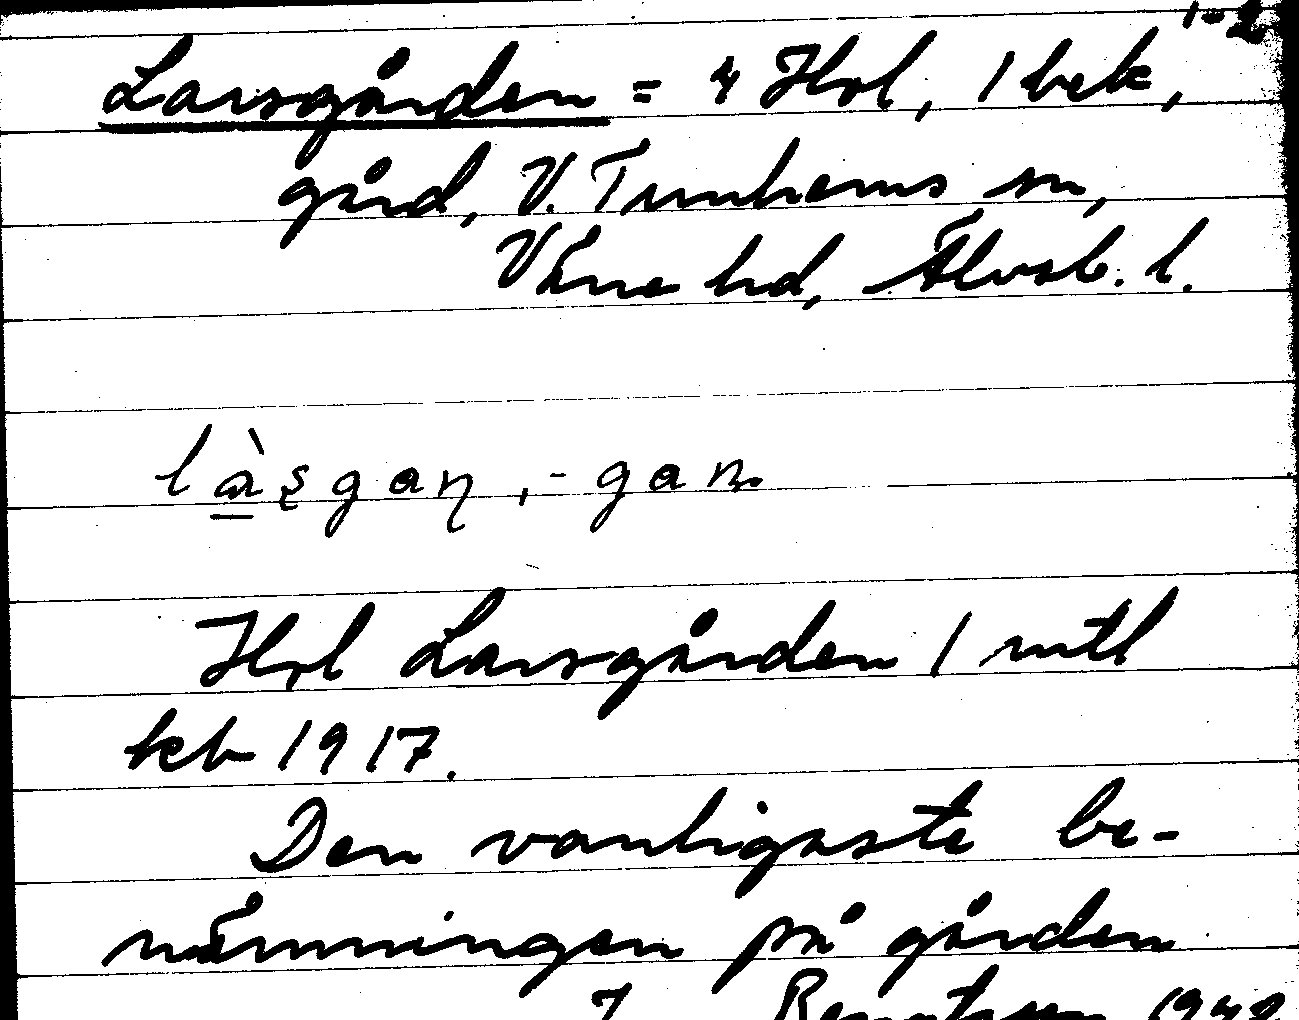 1-2
Larsgården = 4 Hrl, 1 bek,
gård, V. Tunhems sn,
Väne hd, Älvsb. l.
là̱şgaɳ, -gan.
Hrl Larsgården 1 mtl
kb 1917.
Den vanligaste be-
nämningen på gården
Bengtsson 1942